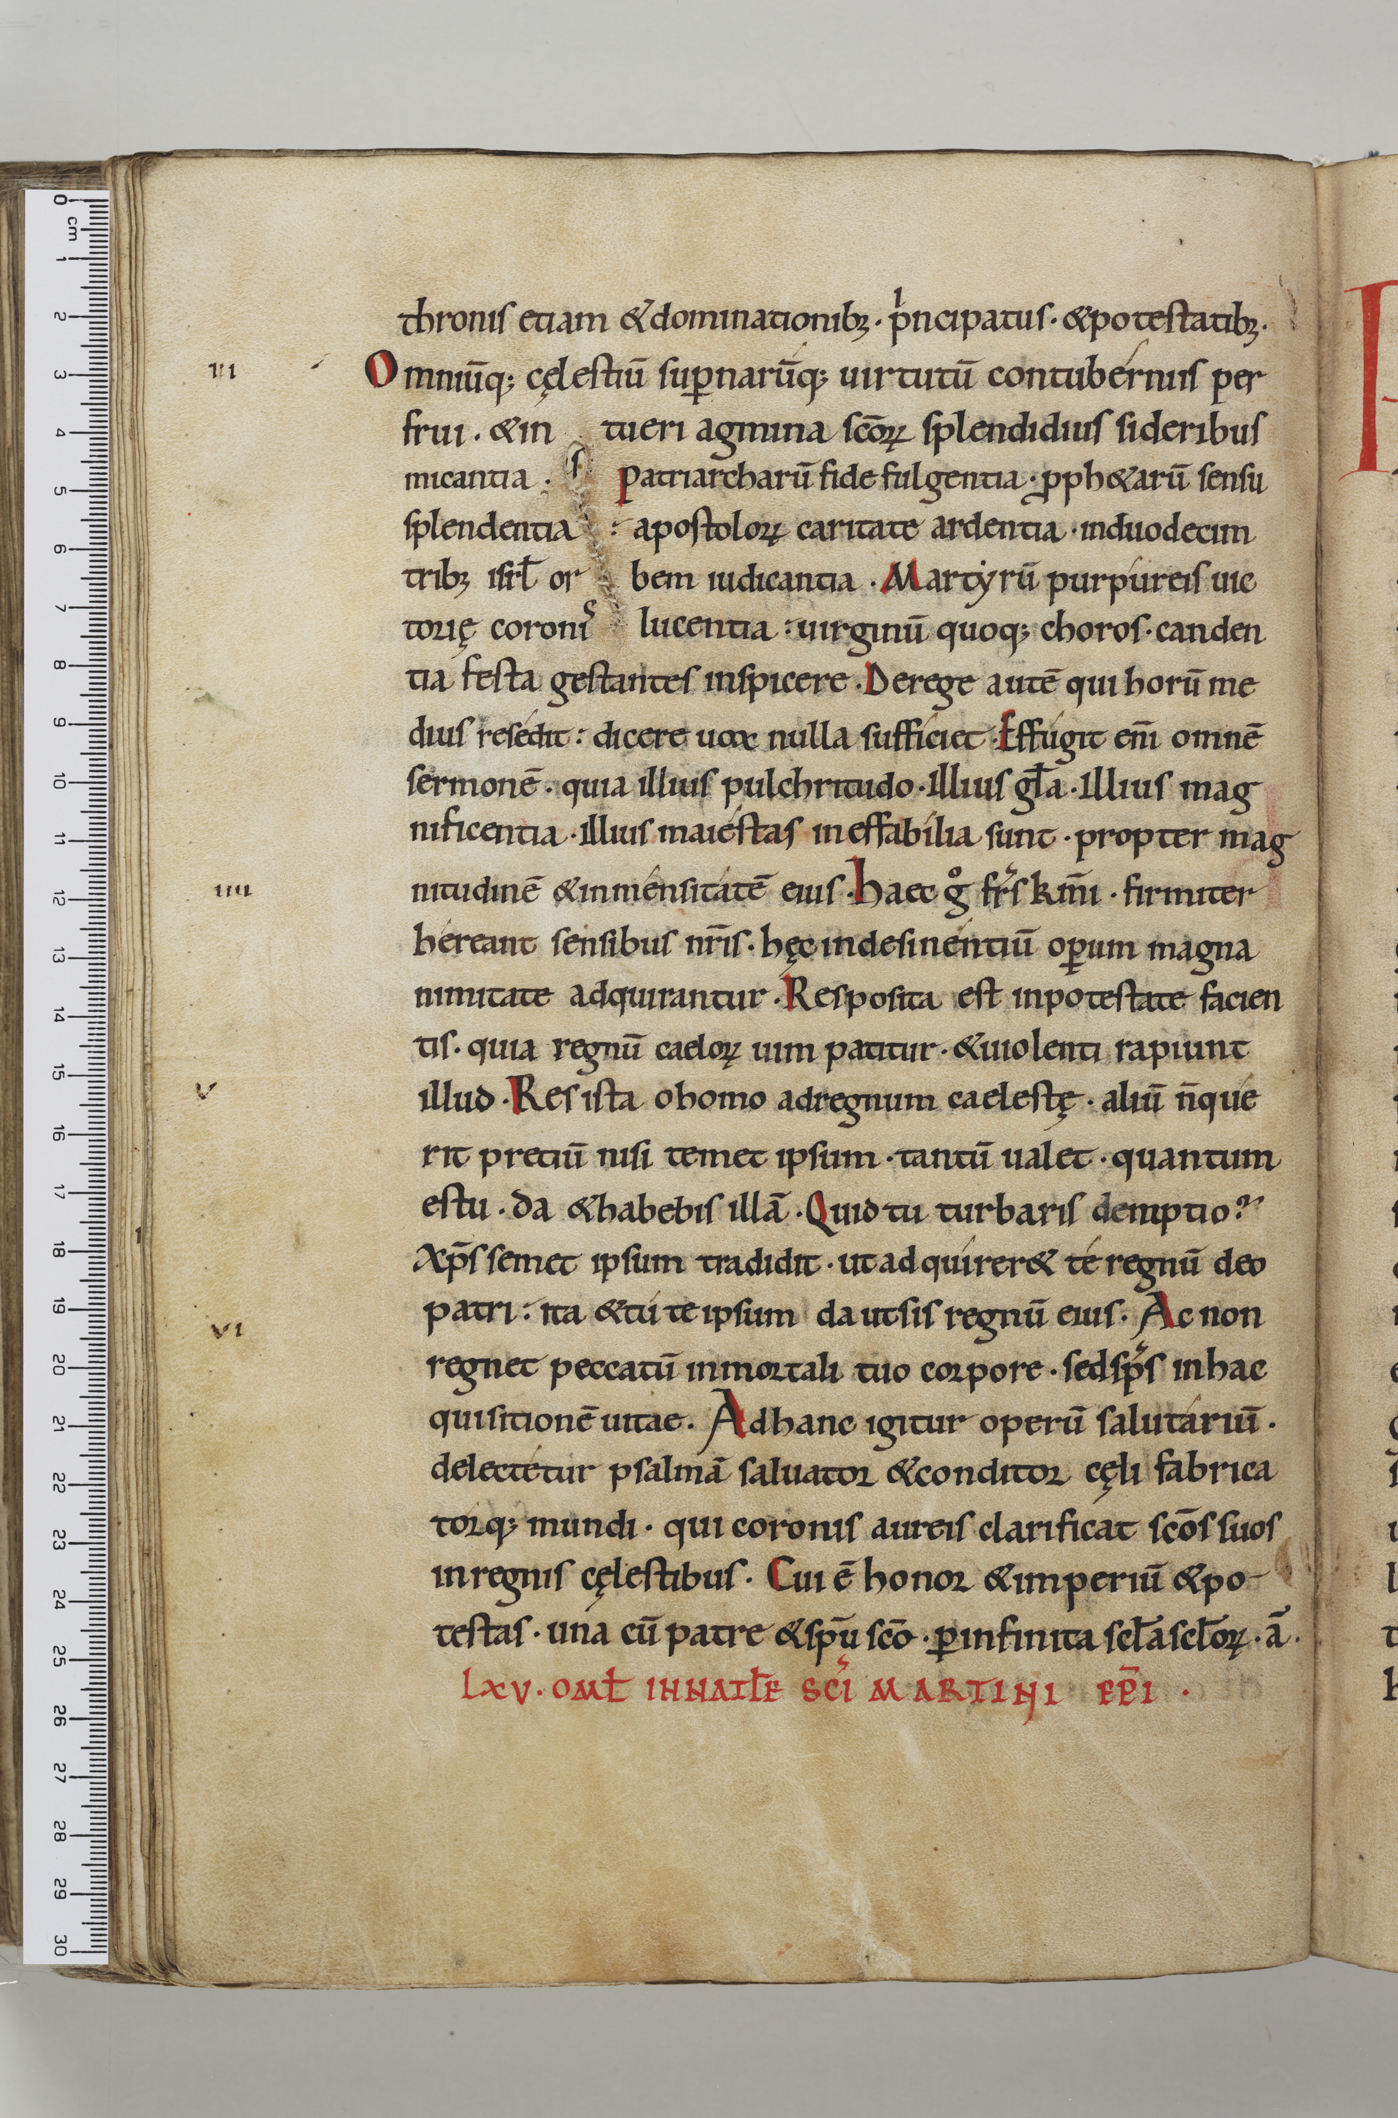 thronis etiam & dominationibꝫ · p̍ncipatus · & potestatibꝫ ·
iii Omniūq; cęlestiū suꝑnarūq; uirtutū contubérniis per
frui · & in tueri agmina scōꝝ splendidius sideribus
micantia · Patriarcharū fide fulgentia · ꝓph&arū sensu
splendentia : apostoloꝝ caritate ardentia · induodecim
tribꝫ isrł or bem iudicantia · Martyrū purpúreis uic
torię coroniˢ lucentia : uirginū quoq; choros · canden
tia festa gestantes inspicere · De rege autē qui horū me
dius resédit : dicere uox nulla sufficiet · Effúgit enī omnē
sermonē · quia illius pulchritudo · Illius gła · Illius mag
nificentia · Illius maiéstas ineffabília sunt · propter mag
iiii nitudinē & inménsitátē eius · haec gͦ fr̄s km̄i · firmiter
héreant sensibus nr̄is · hęc indesinéntiū oꝑum magna
nimitate adquirantur · Res posita est inpotestate facien
tis · quia regnū caeloꝝ uim patitur · & uiolenti rapiunt
v illud · Res ista o homo adregnum caelestę · aliū n̄ que
rit pretiū nisi temet ipsum · tantū ualet · quantum
es tu · da & habebis illā · Quid tu turbaris de mptio?
Xp̄s semet ipsum tradidit · ut adquírer& té regnū deo
vi patri : ita & tú te ipsum da ut sis regnū eius · Ac non
regnet peccatū inmortali tuo corpore · sed sp̄s inhac
quisitionē uitae · Ad hanc igitur operū salutáriū ·
delectétur psalmā saluator & conditor cęli fabrica
tórq; mundi · qui coronis aureis clarificat scōs suos
in regnis cęlestibus · Cui ē honor & imperiū & po
testas · una cū patre & spū scō · ꝑ infinita scła scłoꝝ · ā ·
LXV · OMŁ IN NATŁE SCI MARTINI EP̄I ·